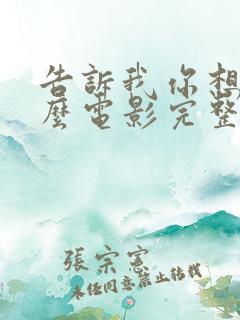 告訴我你想
麼電影完整
張宗憲
未經同意禁止轉載